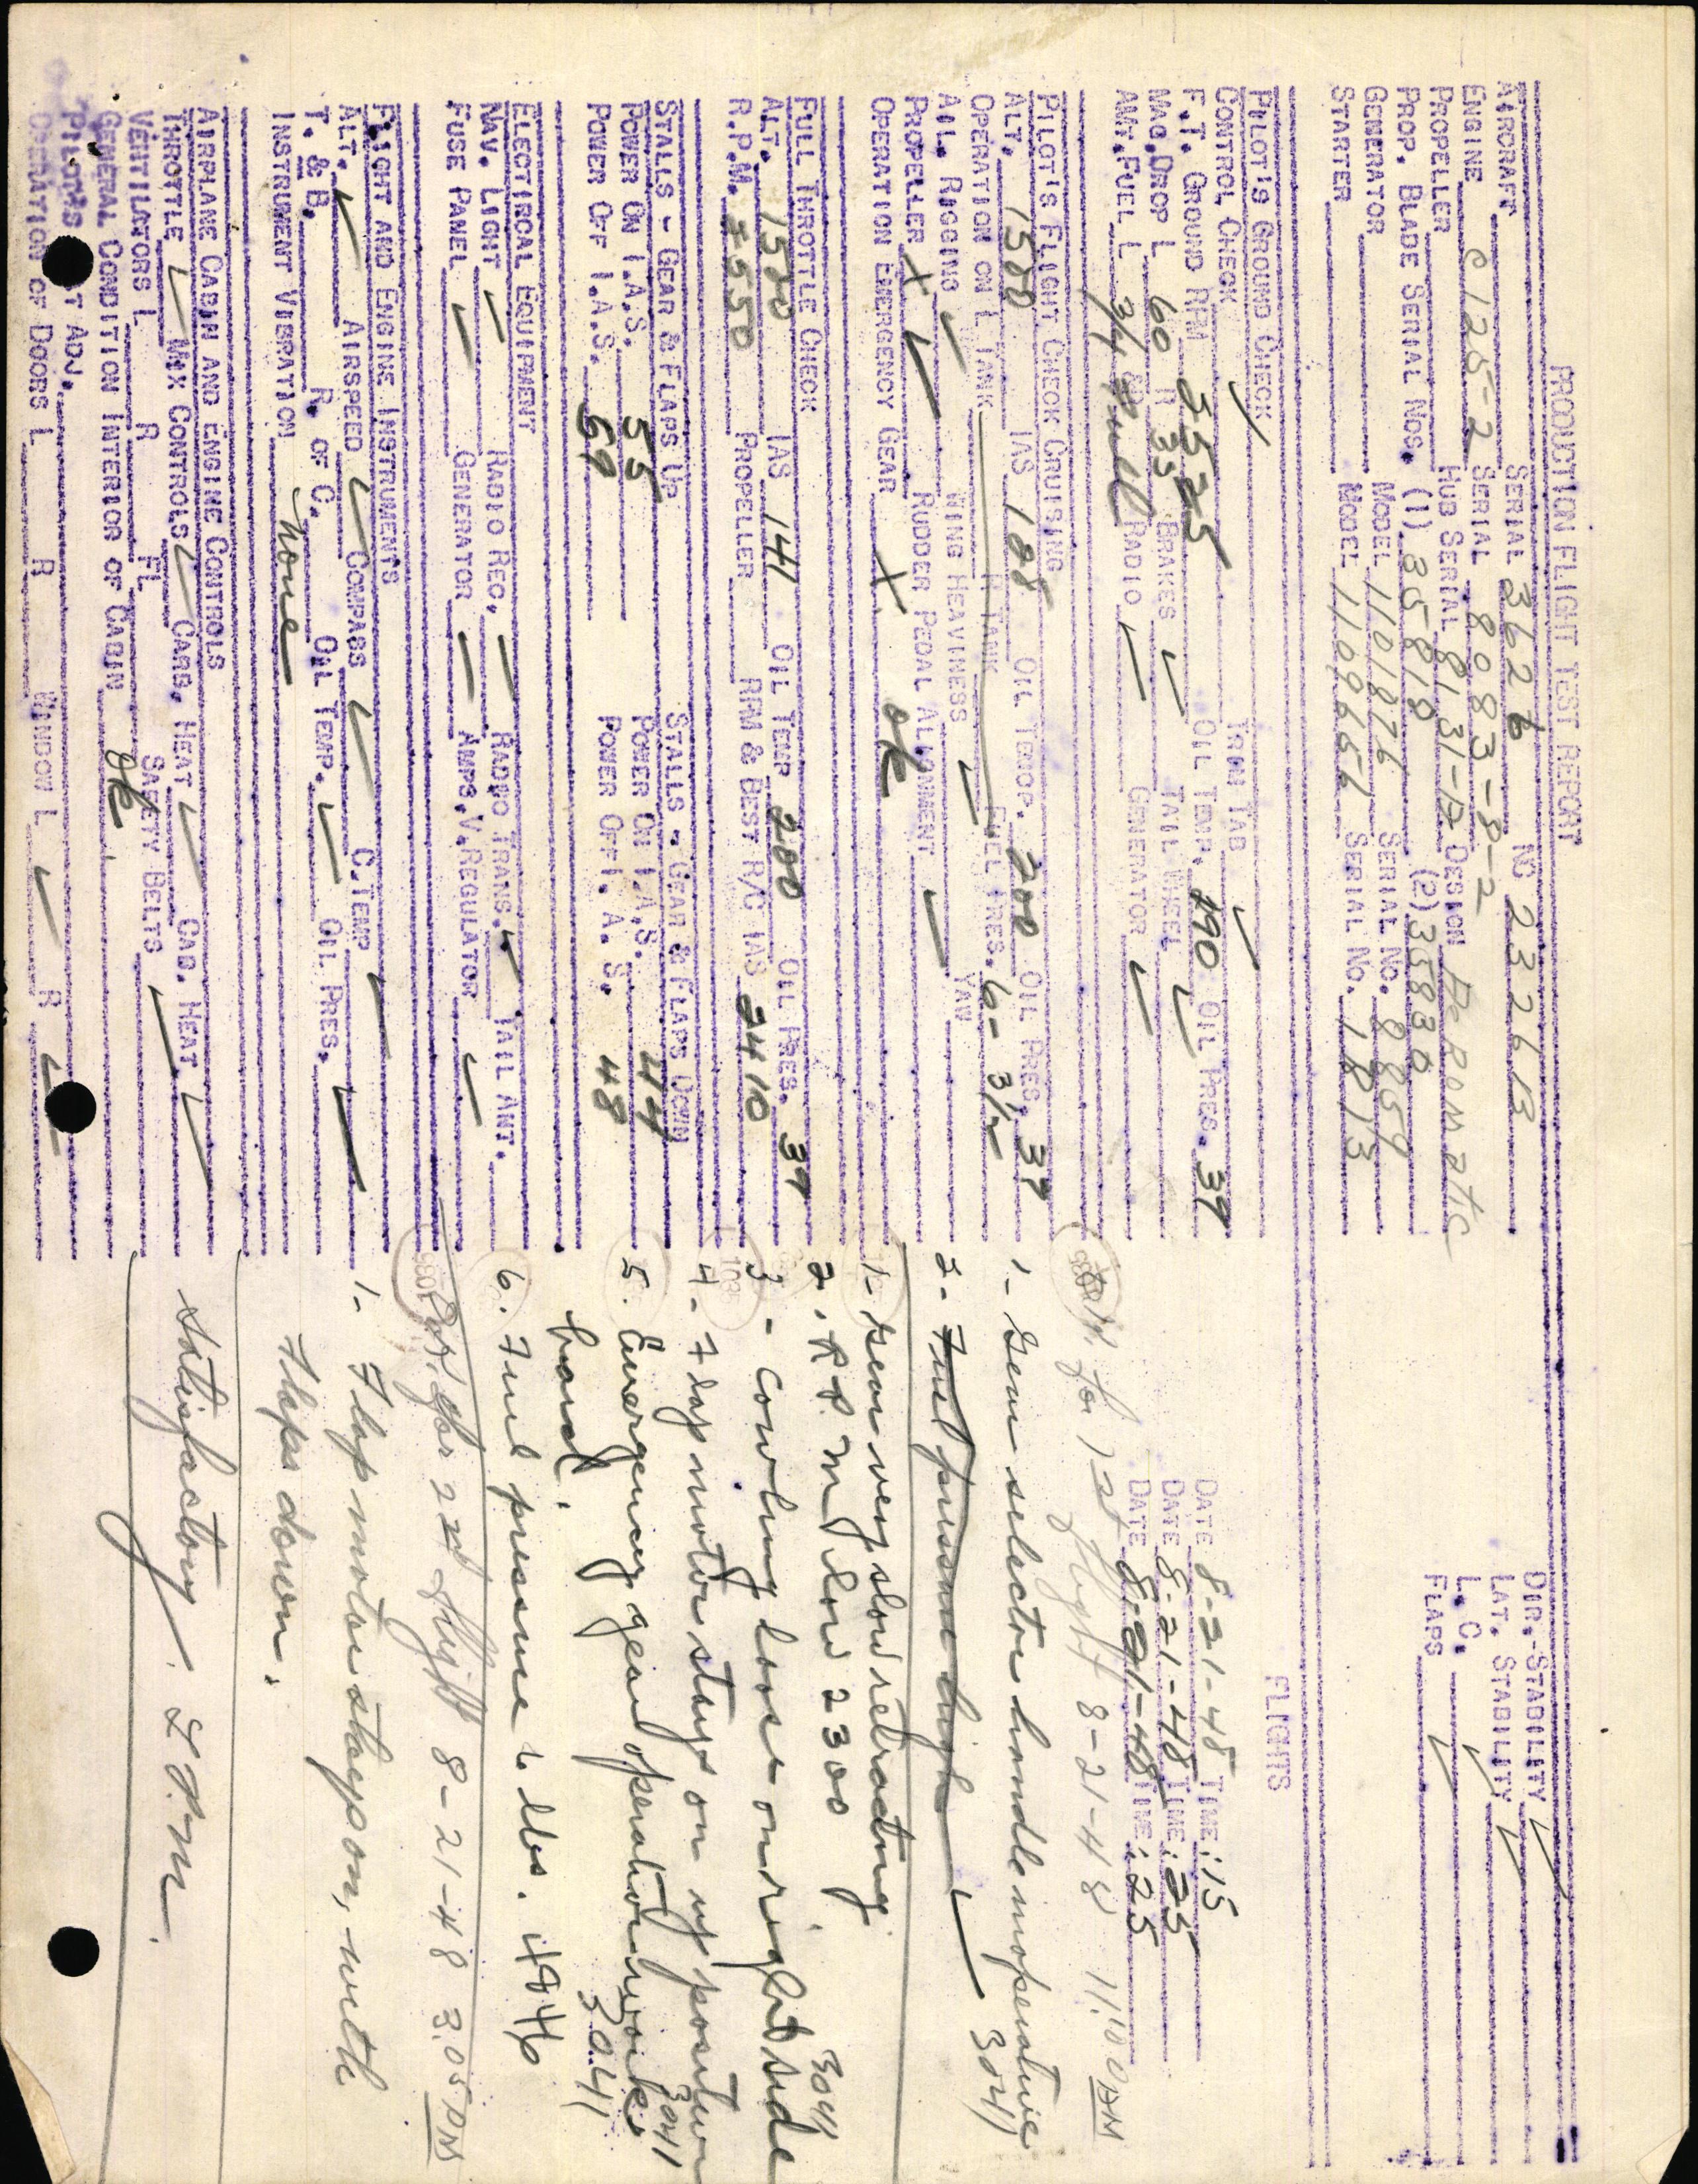 PRODUCTION FLIGHT TEST REPORT
AIRCRAFT SERIAL 3626 NC 23261B
ENGINE C125-2 SERIAL 8083-8-2
PROPELLER HUB SERIAL DESIGN Aeromatic
PROP. BLADE SERIAL NOS. (1) 35818 (2)
GENERATOR MODEL 1101876 SERIAL NO.
STARTER MODEL 1109656 SERIAL NO. 1813
DIR.-STABILITY ✓
LAT. STABILITY ✓
L. C. ✓
FLAPS ✓
PILOT'S GROUND CHECK
CONTROL CHECK ✓ TRIM TAB ✓
F.T. GROUND RPM OIL TEMP. 190 ✓ OIL PRES. 39
MAG. DROP L 60 R 35 BRAKES ✓ TAIL WHEEL
AMT. FUEL L 3/4 R Full RADIO ✓ GENERATOR ✓
FLIGHTS
DATE 8-21-48 TIME :15
DATE 8-21-48 TIME :25
DATE 8-21-48 TIME :25
PILOT'S FLIGHT CHECK CRUISING
ALT. 1500 IAS 108 OIL TEMP. 200 OIL PRES. 39
OPERATION ON L TANK R TANK FUEL PRES. 6- 3½
AIL. RIGGING ✓ WING HEAVINESS ✓ YAW
PROPELLER X ✓ RUDDER PEDAL ALIGNMENT ✓
OPERATION EMERGENCY GEAR X OK
FULL THROTTLE CHECK
ALT. 1500 IAS 141 OIL TEMP 200 OIL PRES. 39
R.P.M. PROPELLER RPM & BEST R/C IAS 2410
STALLS - GEAR & FLAPS UP STALLS - GEAR & FLAPS DOWN
POWER ON I.A.S. 55 POWER ON I.A.S. 44
POWER OFF I.A.S. 59 POWER OFF I. A. S. 48
ELECTIRCAL EQUIPMENT
NAV. LIGHT ✓ RADIO REC. ✓ RADIO TRANS. ✓ TAIL ANT.
FUSE PANEL ✓ GENERATOR ✓ AMPS.V.REGULATOR ✓
FLIGHT AND ENGINE INSTRUMENTS
ALT. ✓ AIRSPEED ✓ COMPASS ✓ C.TEMP ✓
T. & B. R. OF C. OIL TEMP. ✓ OIL PRES. ✓
INSTRUMENT VIBRATION None
AIRPLANE CABIN AND ENGINE CONTROLS
THROTTLE ✓ MIX CONTROLS ✓ CARB. HEAT ✓ CAB. HEAT ✓
VENTILATORS L R FL SAFETY BELTS ✓
GENERAL CONDITION INTERIOR OF CABIN OK
PILOTS T ADJ.
OPERATION OF DOORS L R WINDOW L ✓ R ✓
OK for 1st flight 8-21-48 11:10 AM
1- Gear selector handle inoperative
2- Fuel pressure high ✓ 3041
1- Gear very slow retracting.
2. R.P.M low 2300 3041
3 - Cowling loose on right side
4- Flap motor stays on up position 3041
5. Emergency gear operation works
hard. 3041
6. Fuel pressure 6 lbs.
OK for 2nd flight 8-21-48 3:05 PM
1- Flap motor stays on, with
flaps down.
Satisfactory.